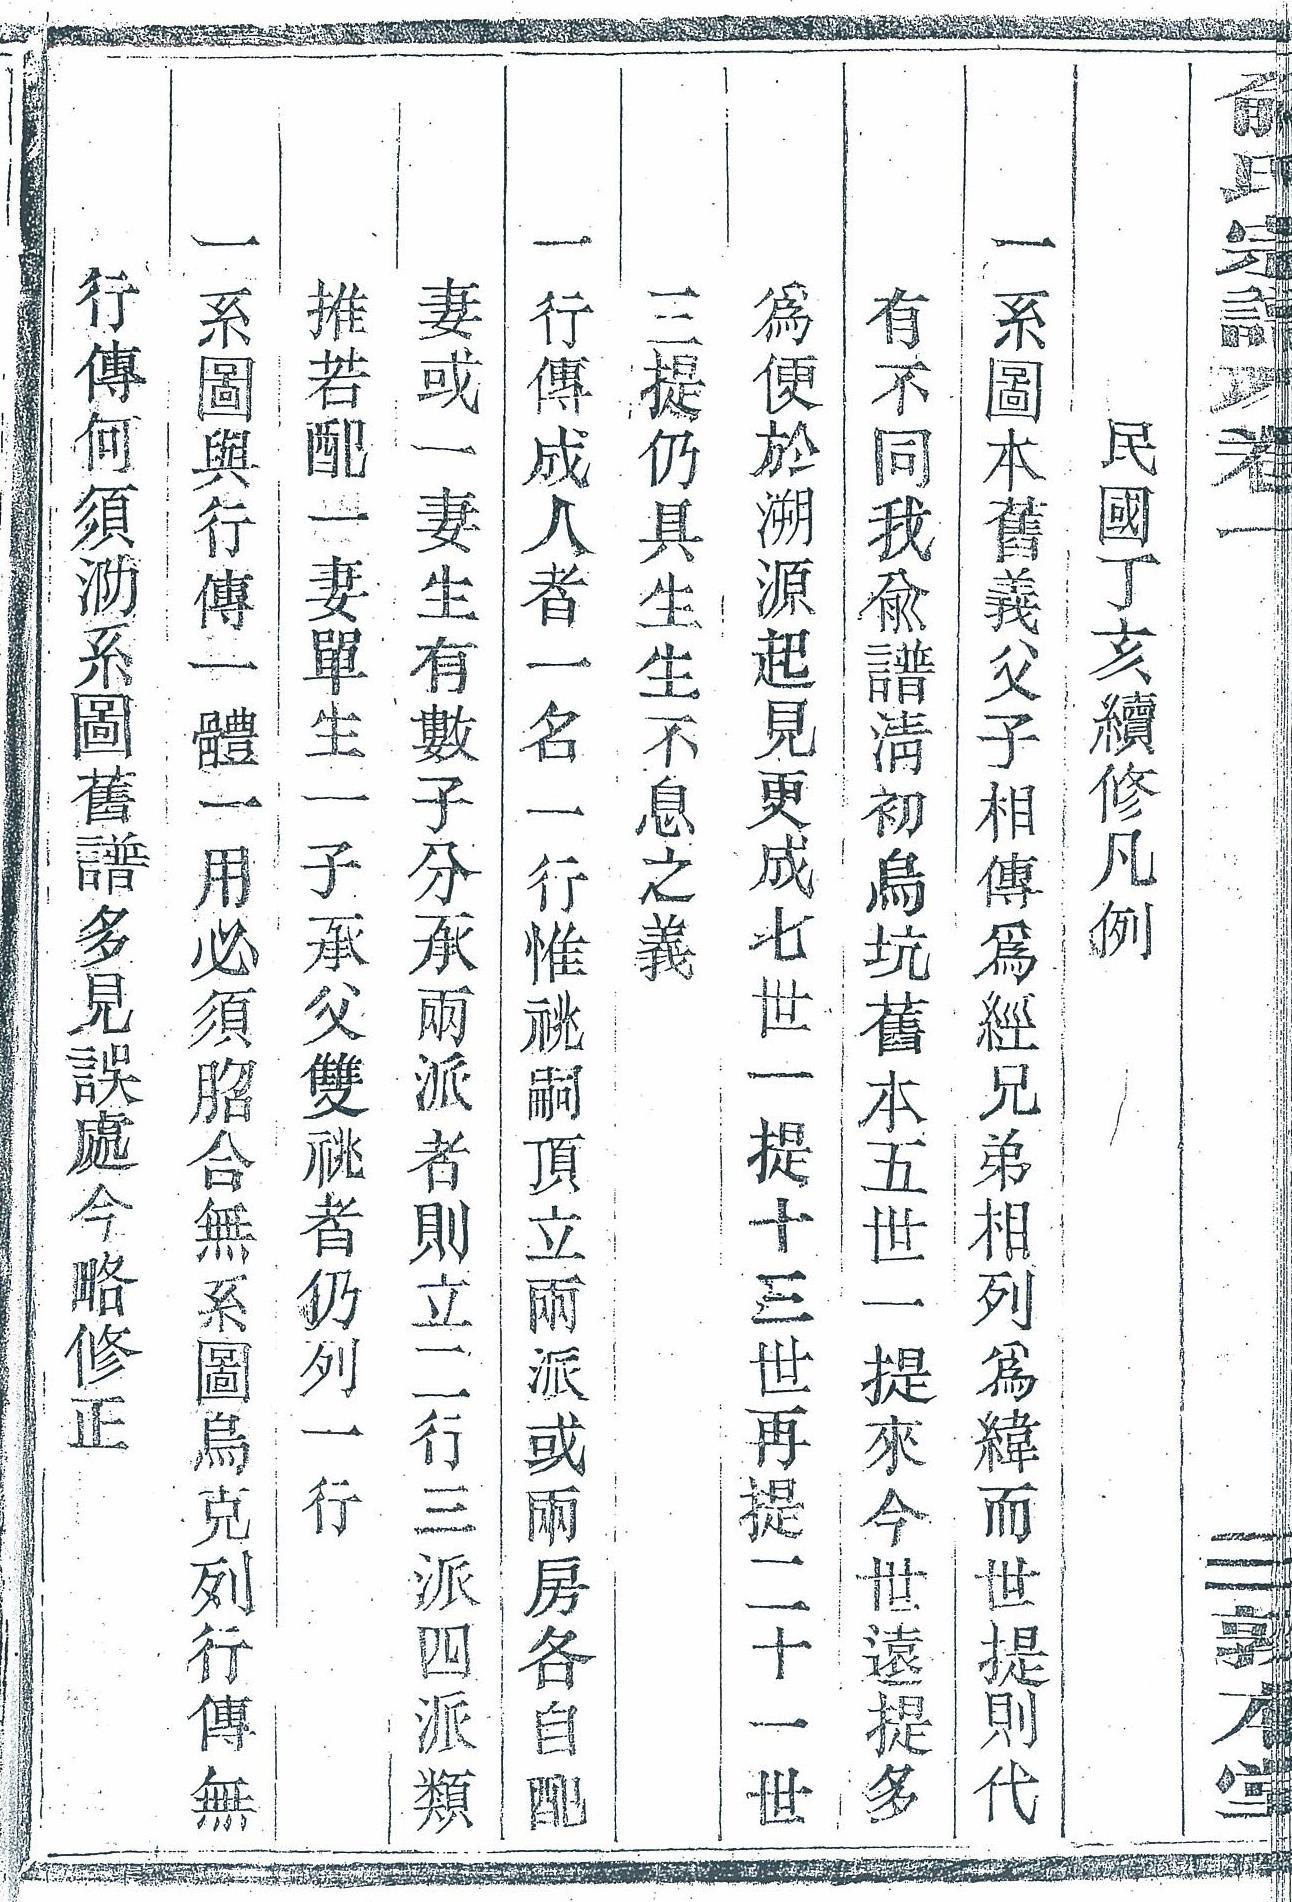 俞氏宗譜卷一
三 敦本堂
民國丁亥續修凡例
一系圖本舊義父子相傳爲經兄弟相列爲緯而世提則代
有不同我俞譜淸初烏坑舊本五世一提來今世遠提多
爲便於溯源起見更成七世一提十三世再提二十一世
三提仍具生生不息之義
一行傳成人者一名一行惟祧嗣頂立兩派或兩房各自配
妻或一妻生有數子分承兩派者則立二行三派四派類
推若配一妻單生一子承父雙祧者仍列一行
一系圖與行傳一體一用必須脗合無系圖烏克列行傳無
行傳何須泐系圖舊譜多見誤處今略修正